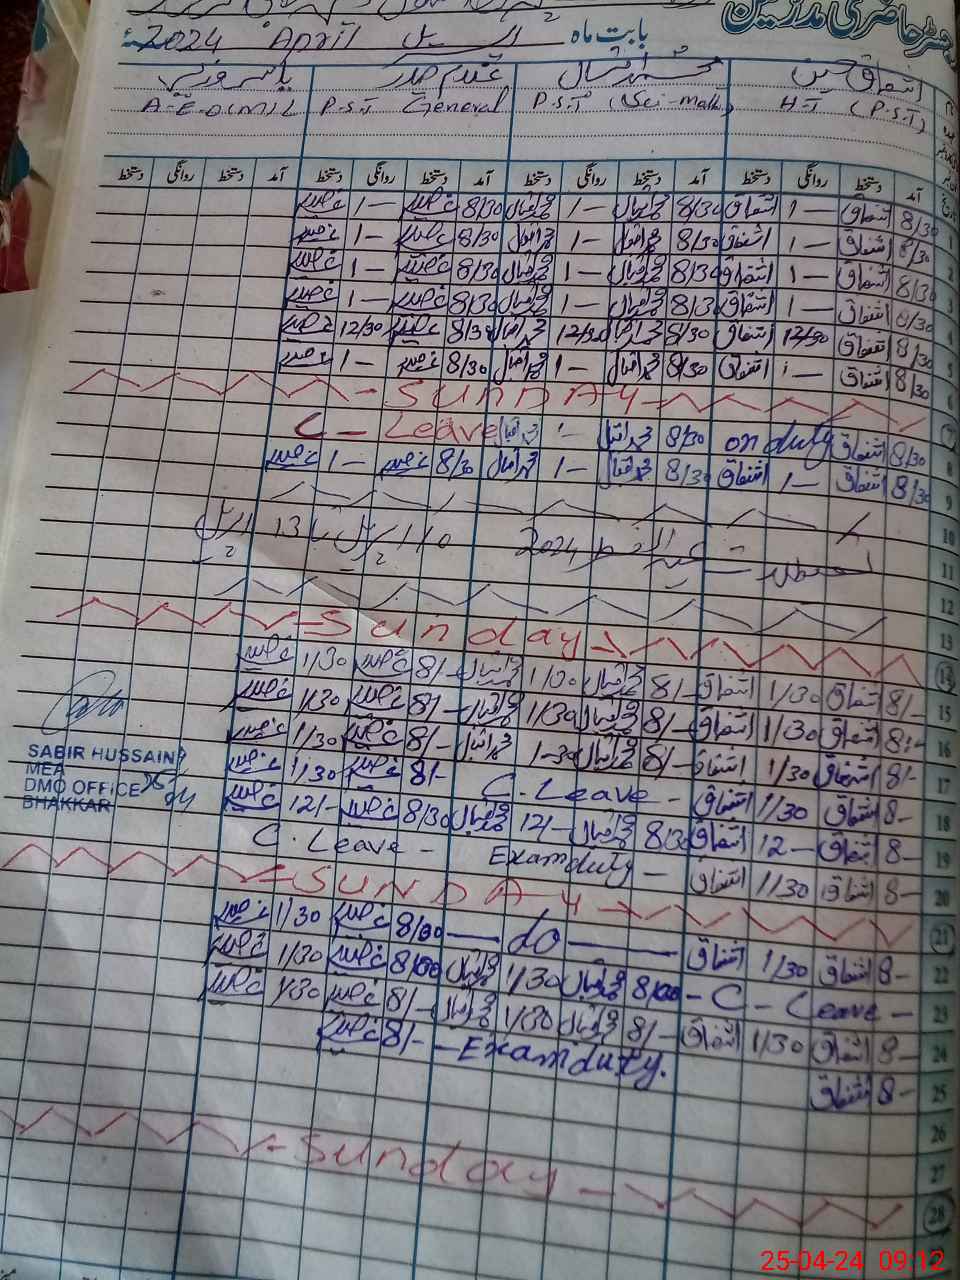 رجسٹر حاضری مدرسین
بابت ماہ اپریل April 2024ء
اشفاق حسین محمد اقبال غلام حیدر یاسر عزیز
H-T (P.S.T) P.S.T (Sci-Math) P.S.T General A-E-O (M)
آمد دستخط روانگی دستخط آمد دستخط روانگی دستخط آمد دستخط روانگی دستخط آمد دستخط روانگی دستخط
1 8/30 اشفاق 1— اشفاق 8/30 محمد اقبال 1— محمد اقبال 8/30 غ حیدر 1— غ حیدر
2 8/30 اشفاق 1— اشفاق 8/30 محمد اقبال 1— محمد اقبال 8/30 غ حیدر 1— غ حیدر
3 8/30 اشفاق 1— اشفاق 8/30 محمد اقبال 1— محمد اقبال 8/30 غ حیدر 1— غ حیدر
4 8/30 اشفاق 1— اشفاق 8/30 محمد اقبال 1— محمد اقبال 8/30 غ حیدر 1— غ حیدر
5 8/30 اشفاق 12/30 اشفاق 8/30 محمد اقبال 12/30 محمد اقبال 8/30 غ حیدر 12/30 غ حیدر
6 8/30 اشفاق 1— اشفاق 8/30 محمد اقبال 1— محمد اقبال 8/30 غ حیدر 1— غ حیدر
7 -SUNDAY-
8 8/30 اشفاق on duty 8/30 محمد اقبال 1— محمد اقبال C-Leave
9 8/30 اشفاق 1— اشفاق 8/30 محمد اقبال 1— محمد اقبال 8/30 غ حیدر 1— غ حیدر
10
11 تعطیلات عید الفطر 2024 10 اپریل تا 13 اپریل
12
13
14 -Sunday-
15 8/- اشفاق 1/30 اشفاق 8/- محمد اقبال 1/30 محمد اقبال 8/- غ حیدر 1/30 غ حیدر
16 8/- اشفاق 1/30 اشفاق 8/- محمد اقبال 1/30 محمد اقبال 8/- غ حیدر 1/30 غ حیدر
17 8/- اشفاق 1/30 اشفاق 8/- محمد اقبال 1-30 محمد اقبال 8/- غ حیدر 1/30 غ حیدر
18 8- اشفاق 1/30 اشفاق C.Leave - 8/- غ حیدر 1/30 غ حیدر
19 8- اشفاق 12- اشفاق 8/30 محمد اقبال 12/- محمد اقبال 8/30 غ حیدر 12/- غ حیدر
20 8- اشفاق 1/30 اشفاق Exam duty - C.Leave -
21 -SUNDAY-
22 8- اشفاق 1/30 اشفاق — do — 8/00 غ حیدر 1/30 غ حیدر
23 - C - Leave - 8/00 محمد اقبال 1/30 محمد اقبال 8/00 غ حیدر 1/30 غ حیدر
24 8- اشفاق 1/30 اشفاق 8/- محمد اقبال 1/30 محمد اقبال 8/- غ حیدر 1/30 غ حیدر
25 8- اشفاق - Exam duty. 8/- غ حیدر
26
27
28 -Sunday-
SABIR HUSSAIN
MEA
DMO OFFICE
BHAKKAR
25-04-24 09:12